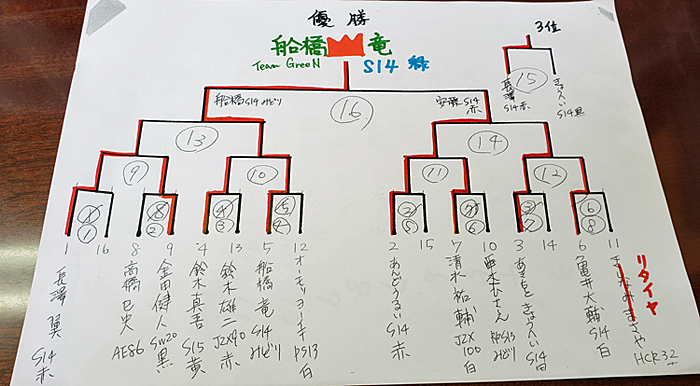 優勝
船橋 竜
Team GreeN
S14 緑
3位
15
長澤
S14赤
きょうへい
S14黒
船橋S14みどり
安藤S14
赤
16
13
14
9
10
11
12
1
2
3
5
6
8
1
16
8
9
4
13
5
12
2
15
7
10
3
14
6
11
長澤 翼
S14
赤
高橋
AE86
金田健人
SW20
黒
鈴木真吾
S15
黄
鈴木雄二
JZX90
赤
船橋 竜
S14
みどり
オーモッ
PS13
白
あんどう
S14
赤
清水祐輔
JZX
100
白
RPS13
みどり
きょうへい
S14
亀井大輔
S14
白
リタイヤ
HCR32